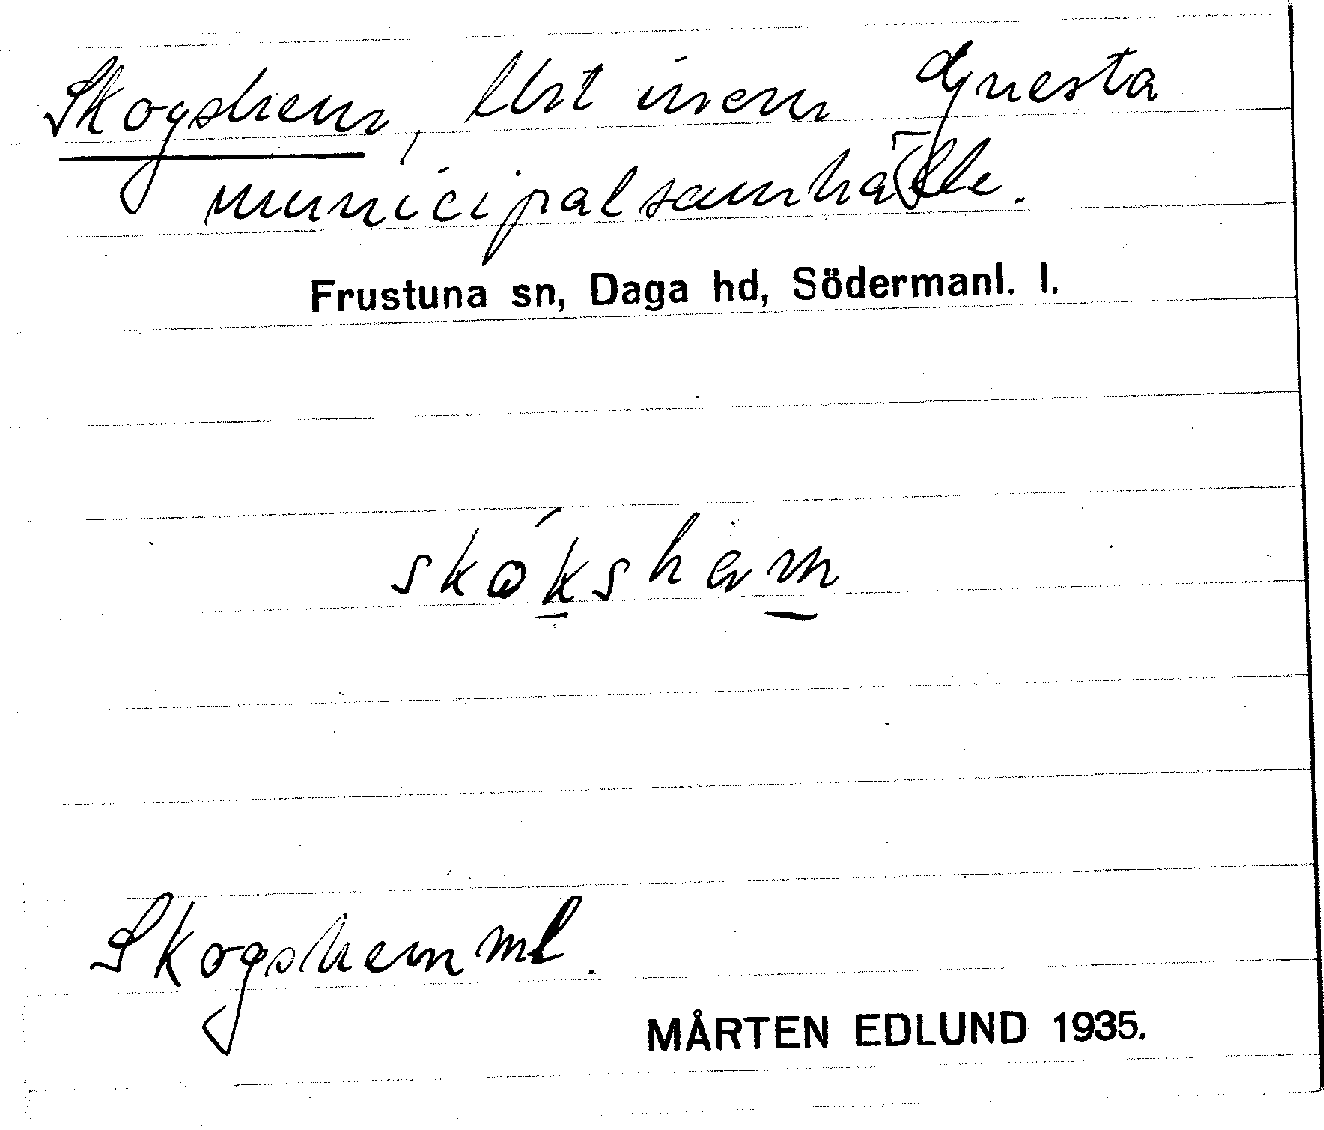 Skogshem, lht inom Gnesta
municipalsamhälle.
Frustuna sn, Daga hd, Södermanl. l.
skóksham
Skogshem ml.
MÅRTEN EDLUND 1935.